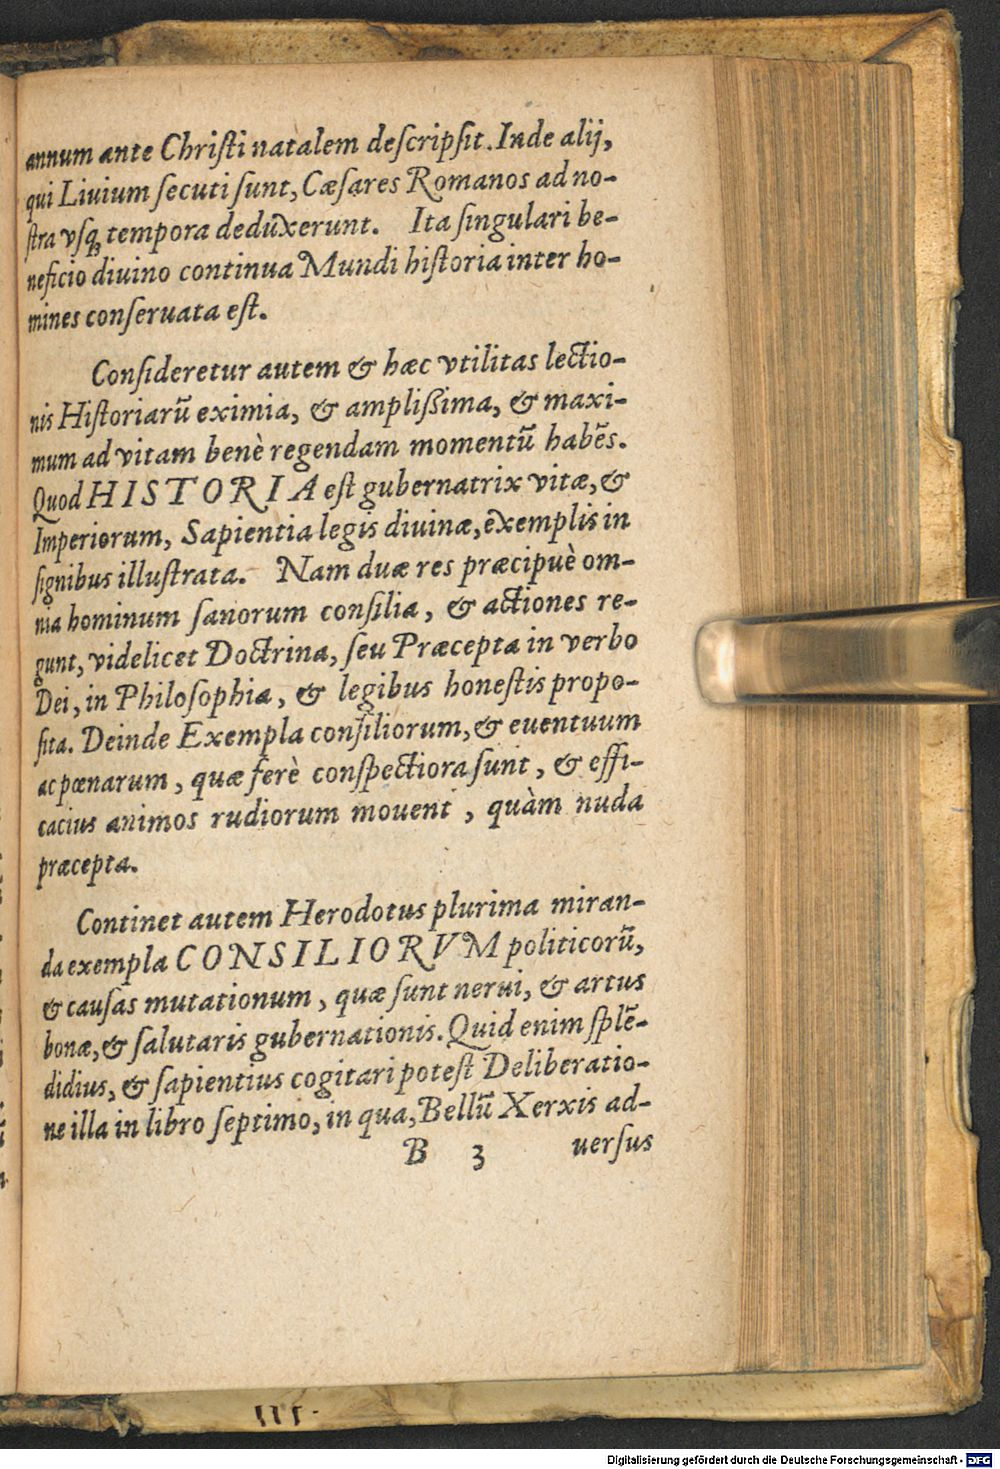 annum ante Christi natalem descripsit. Inde alij,
qui Liuium secuti sunt, Cæsares Romanos ad no-
stra vsq; tempora deduxerunt. Ita singulari be-
neficio diuino continua Mundi historia inter ho-
mines conseruata est.
Consideretur autem & hæc vtilitas lectio-
nis Historiarũ eximia, & amplißima, & maxi-
mum ad vitam benè regendam momentũ habẽs.
Quod HISTORIA est gubernatrix vitæ, &
Imperiorum, Sapientia legis diuinæ, exemplis in
signibus illustrata. Nam duæ res præcipuè om-
nia hominum sanorum consilia, & actiones re-
gunt, videlicet Doctrina, seu Præcepta in verbo
Dei, in Philosophia, & legibus honestis propo-
sita. Deinde Exempla consiliorum, & euentuum
ac pœnarum, quæ ferè conspectiora sunt, & effi-
cacius animos rudiorum mouent, quàm nuda
præcepta.
Continet autem Herodotus plurima miran-
da exempla CONSILIORVM politicorũ,
& causas mutationum, quæ sunt nerui, & artus
bonæ, & salutaris gubernationis. Quid enim splẽ-
didius, & sapientius cogitari potest Deliberatio-
ne illa in libro septimo, in qua, Bellũ Xerxis ad-
B 3 uersus
Digitalisierung gefördert durch die Deutsche Forschungsgemeinschaft - DFG